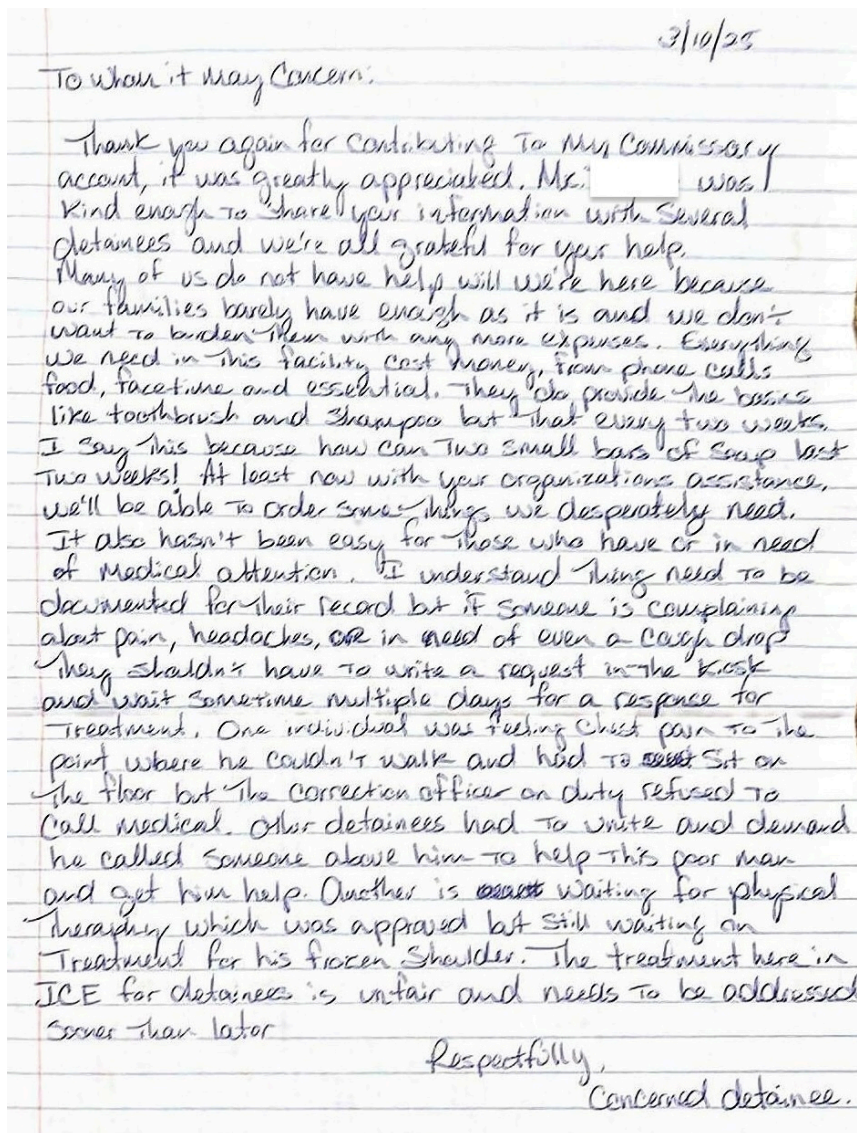 3/10/25
To whom it may Concern:
Thank you again for contributing To My Commissary
account, it was greatly appreciated. Mr. was
kind enough To share your information with several
detainees and we're all grateful for your help.
Many of us do not have help will we're here because
our families barely have enough as it is and we don't
want To burden Them with any more expenses. Everything
we need in This facility cost money, from phone calls
food, facetime and essential. They do provide The basics
like toothbrush and Shampoo but That every two weeks.
I say This because how can Two small bars of Soap last
Two weeks! At least now with your organizations assistance,
we'll be able To order some Things we desperately need.
It also hasn't been easy for Those who have or in need
of Medical attention. I understand Thing need To be
documented for Their record but if Someone is complaining
about pain, headaches, or in need of even a Cough drop
They shouldn't have To write a request in The Kiosk
and wait Sometime multiple days for a response for
Treatment. One individual was feeling Chest pain To The
point where he couldn't walk and had To Sit on
The floor but The Correction officer on duty refused To
Call Medical. Other detainees had To unite and demand
he called Someone above him To help This poor man
and get him help. Another is waiting for physical
Theraphy which was approved but Still waiting on
Treatment for his frozen Shoulder. The treatment here in
ICE for detainees is unfair and needs To be addressed
Sooner Than later
Respectfully,
Concerned detainee.